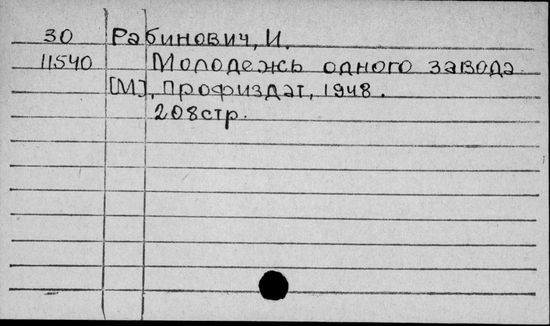 30 Рабинович, И.
11540 Молодежь одного завода.
[М], Профиздат, 1948.
208стр.